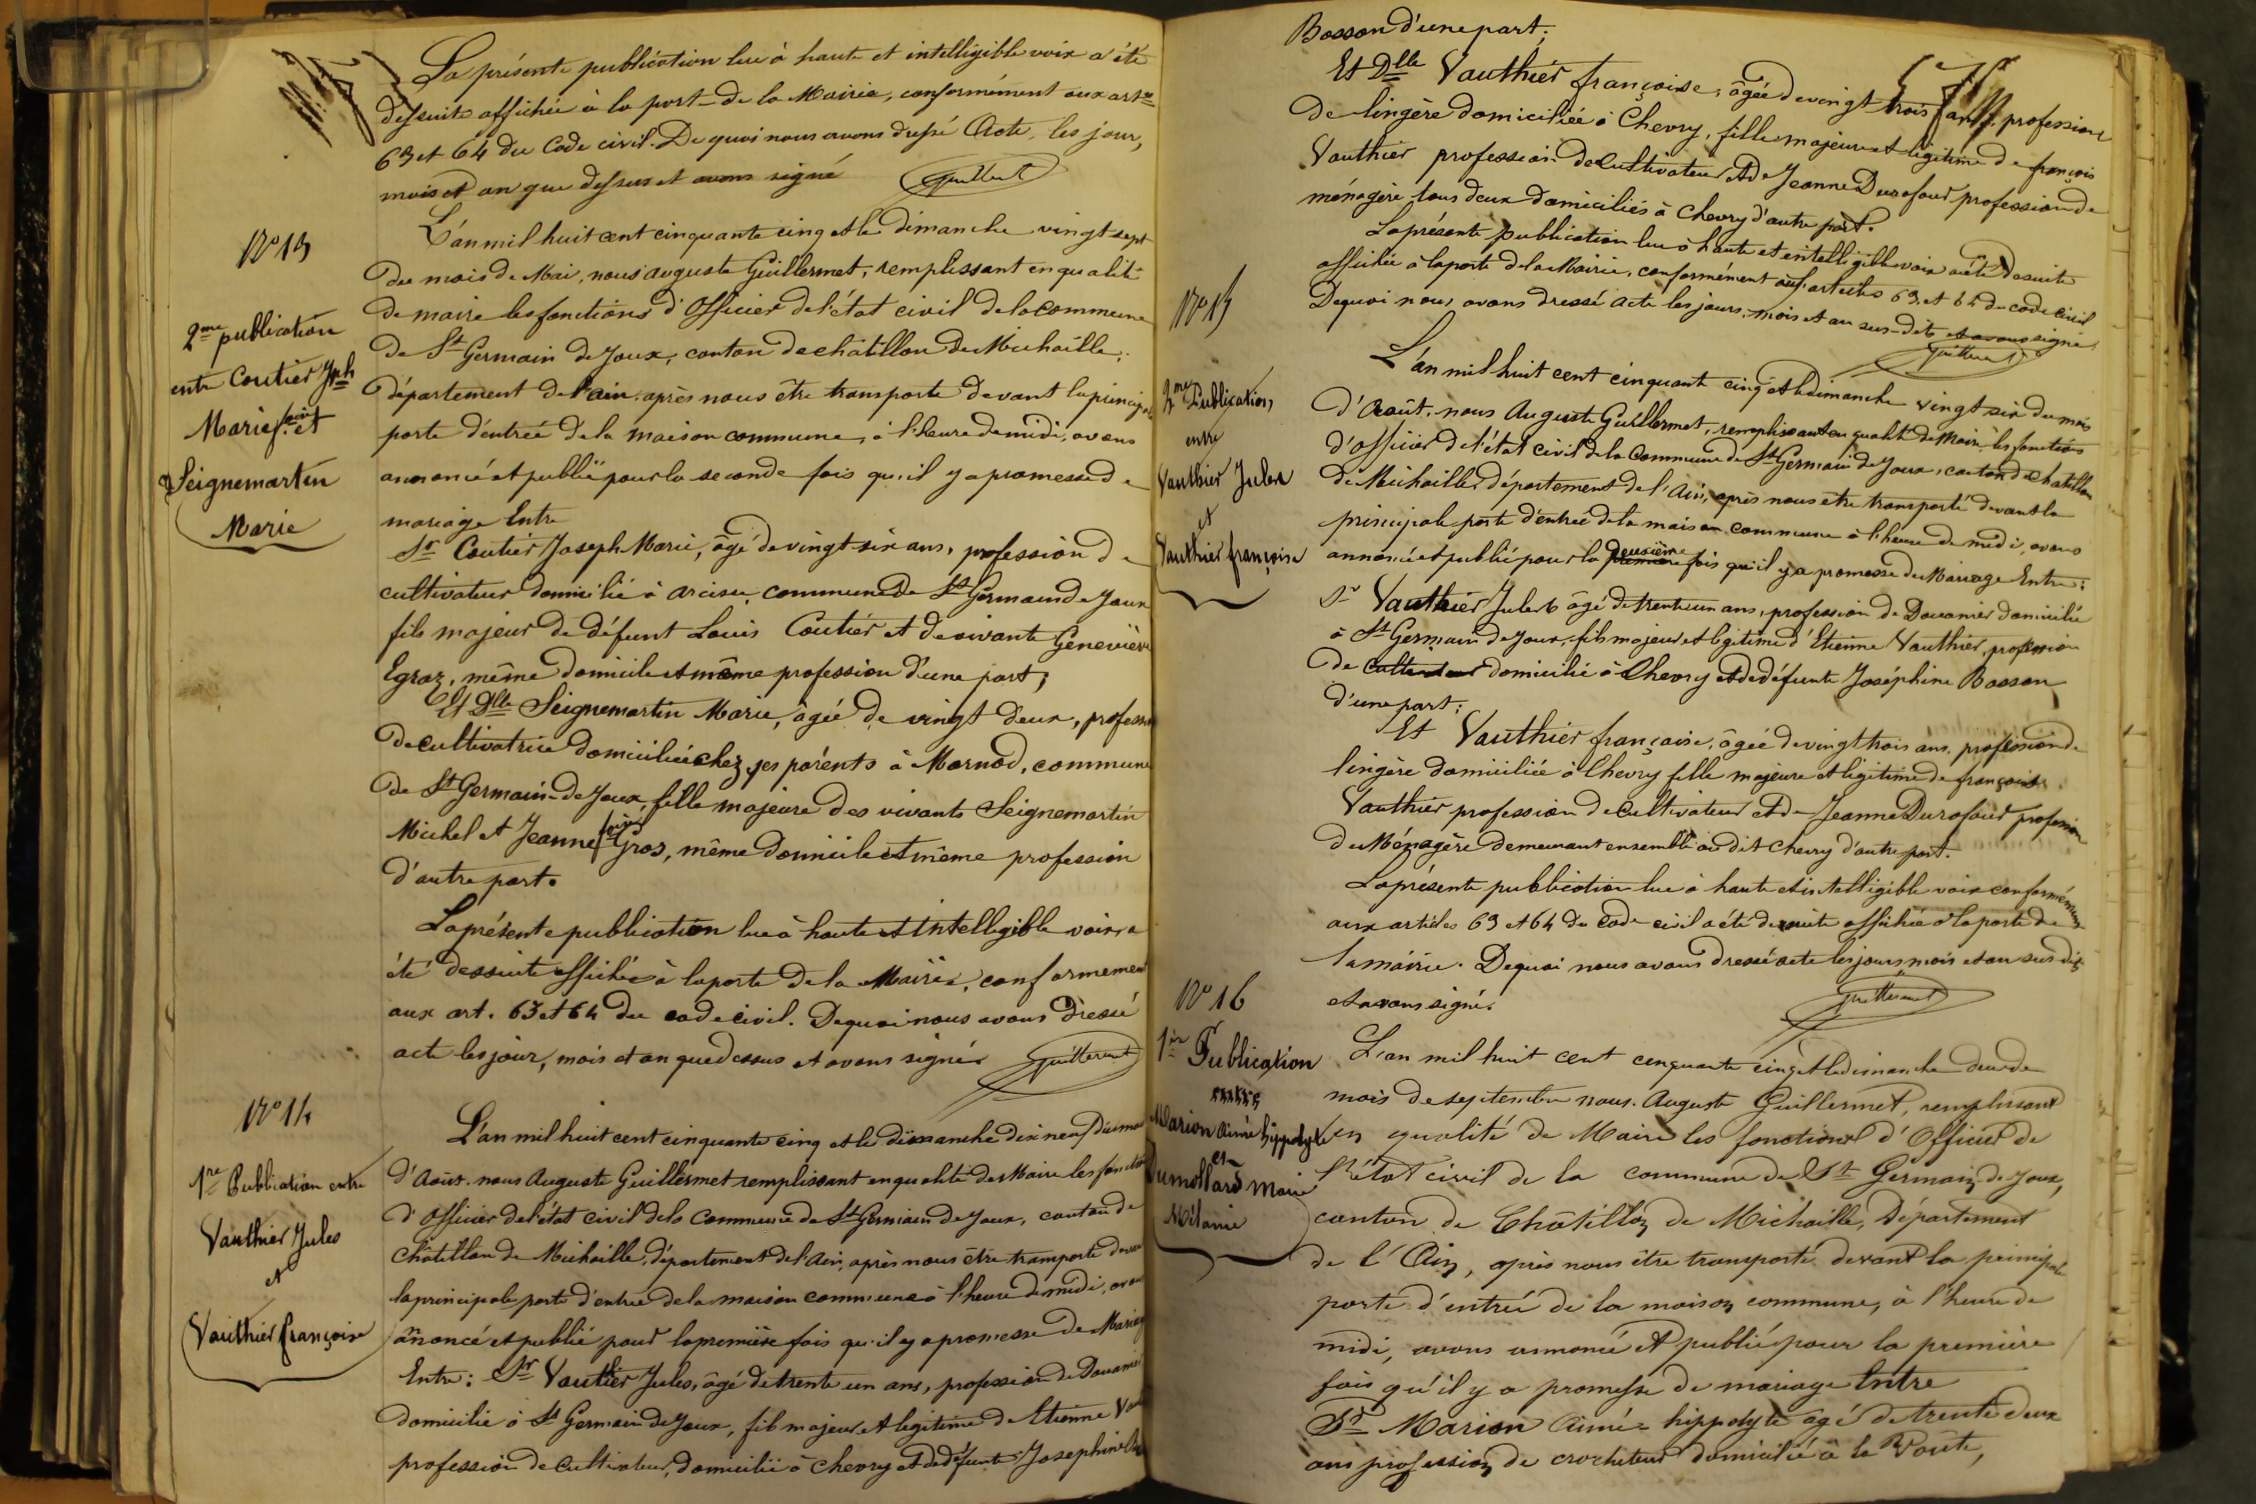 La présente publication lue à haute et intelligible voix a été
dessuite affichée à la porte de la Mairie, conformément aux art
63 et 64 du Code civil. De quoi nous avons dressé Acte, les jour,
mois et an que dessus et avons signé
Guillermet
N° 13
2me publication
entre Coutier Jph
Marie et
Seignemartin
Marie
L'an mil huit cent cinquante cinq et le dimanche vingt sept
du mois de Mai, nous auguste Guillermet, remplissant en qualité
de maire les fonctions d'Officier de l'état civil de la commune
de St Germain de Joux, canton de châtillon de Michaille,
département de l'ain, après nous être transporté devant la principale
porte d'entrée de la maison commune, à l'heure de midi, avons
annoncé et publié pour la seconde fois qu'il y a promesse de
mariage Entre
Sr Coutier Joseph Marie, âgé de vingt six ans, profession de
cultivateur domicilié à , commune de St Germain de Joux
fils majeur de défunt Louis Coutier et de vivante Geneviève
Egraz, même domicile et même profession d'une part;
Et Dlle Seignemartin Marie, âgée de vingt deux, profession
de cultivatrice domiciliée chez ses parents à Marnod, commune
de St Germain-de-Joux, fille majeure des vivants Seignemartin
Michel et Jeanne Gros, même domicile et même profession
d'autre part.
La présente publication lue à haute et intelligible voix a
été dessuite affichée à la porte de la Mairie, conformement
aux art. 63 et 64 du code civil. De quoi nous avons dressé
acte les jour, mois et an que dessus et avons signé
Guillermet
N° 14
1re Publication entre
Vauthier Jules
et
Vauthier françoise
L'an mil huit cent cinquante cinq et le dimanche dix neuf du mois
d'Août. nous Auguste Guillermet remplissant en qualité de Maire les fonctions
d'Officier de l'état civil de la Commune de St Germain de Joux, canton de
Châtillon de Michaille, département de l'Ain, après nous être transporté devant
la principale porte d'entrée de la maison commune à l'heure de midi, avons
annoncé et publié pour la première fois qu'il y a promesse de Mariage
Entre: Sr Vauthier Jules, âgé de trente un ans, profession de Douanier
domicilié à St Germain de Joux, fils majeur et légitime de Etienne
profession de cultivateur, domicilié à chevry et de défunte Joséphine
Bosson d'une part;
Et Dlle Vauthier françoise, âgée de vingt trois ans, profession
de lingère domiciliée à Chevry, fille majeure et légitime de françois
Vauthier profession de cultivateur et de Jeanne Durafour profession de
ménagère tous deux domiciliés à chevry d'autre part.
La présente publication lue à haute et intelligible voix a été de suite
affichée à la porte de la Mairie, conformément aux articles 63 et 64 du code civil
De quoi nous avons dressé acte les jours, mois et an sus-dits et avons signé
Guillermet
N° 15
2me Publication,
entre
Vauthier Jules
et
Vauthier françoise
L'an mil huit cent cinquante cinq et le dimanche vingt six du mois
d'Août, nous Auguste Guillermet, remplissant en qualité de Maire les fonctions
d'officier de l'état civil de la Commune de St Germain de Joux, canton de chatillon
de Michaille, département de l'Ain, après nous être transporté devant la
principale porte d'entrée de la maison commune à l'heure de midi, avons
annoncé et publié pour la première deuxième fois qu'il y a promesse de Mariage Entre:
Sr Vauthier Jules âgé de trente un ans, profession de Douanier domicilié
à St Germain de Joux, fils majeur et légitime d'Etienne Vauthier, profession
de cultivateur domicilié à Chevry et de défunte Joséphine Bosson
d'une part;
Et Vauthier françoise, âgée de vingt trois ans, profession de
lingère domiciliée à Chevry fille majeure et légitime de françois
Vauthier profession de cultivateur et de Jeanne Durafour profession
de Ménagère demeurant ensemble au dit chevry d'autre part.
La présente publication lue à haute et intelligible voix conformément
aux articles 63 et 64 du code civil a été de suite affichée à la porte de
la mairie. De quoi nous avons dressé acte les jours mois et an sus dits
et avons signé.
Guillermet
N° 16
1re Publication
entre
Marion aimé hippolyte
et
Dumollard Marie
Mélanie
L'an mil huit cent cinquante cinq et le dimanche deux du
mois de septembre nous. Auguste Guillermet, remplissant
en qualité de Maire les fonctions d'Officier de
l'état civil de la commune de St Germain de Joux,
canton de Châtillon de Michaille, Département
de l'Ain, après nous être transporté devant la principale
porte d'entrée de la maison commune, à l'heure de
midi, avons annoncé et publié pour la première
fois qu'il y a promesse de mariage Entre
Sr Marion Aimé hippolyte âgé de trente deux
ans profession de crocheteur domicilié à la Voûte,